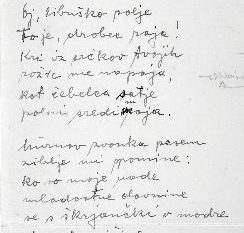 Oj, libuško polje
to je, drobec raja!
Kri iz srčkov tvojih
rožic me napaja,
kot čebelca satje
polni sredi maja.
murnov zvonka pesem
ziblje mi spomine:
ko vo moje
mladostne davnine
se s škrjančki v modre